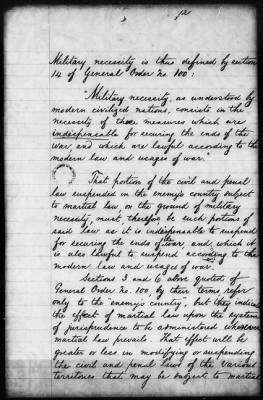 Military necessity is thus defined by section
14 of General Order No. 100:
"Military necessity, as understood by
modern civilized nations, consists in the
necessity of those measures which are
indispensable for securing the ends of the
war, and which are lawful according to the
modern law and usages of war."
That portion of the civil and penal
law suspended in the enemy's country subject
to martial law, on the ground of military
necessity, must, therefore be such portions of
said law as it is indispensable to suspend
for securing the ends of the war, and which it
is also lawful to suspend according to the
modern law and usages of war.
Sections 3 and 6 above quoted of
General Order No. 100, by their terms refer
only to the "enemy's country", but they indicate
the effect of martial law upon the system
of jurisprudence to be administered wherever
martial law prevails. That effect will be
greater or less in modifying or suspending
the civil and penal laws of the various
territories that may be subject to martial